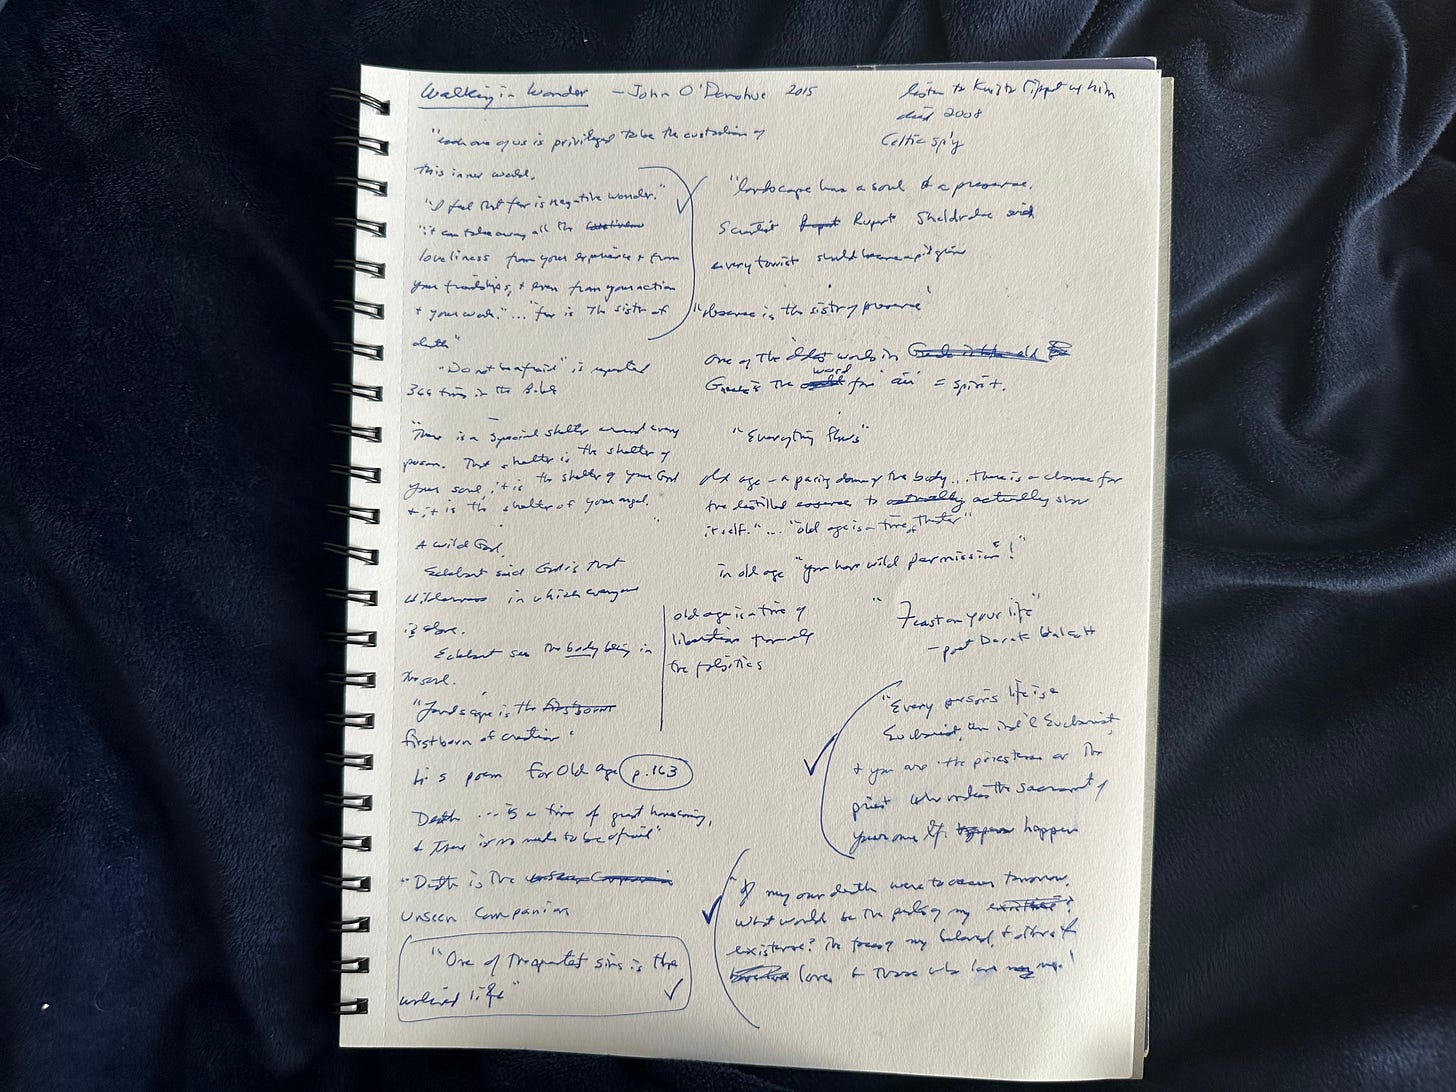 Walking in Wonder – John O'Donohue 2015
listen to Krista Tippet w him
died 2008
Celtic sp'y
"each one of us is privileged to be the custodian of
this inner world.
"I feel that fear is negative wonder."
"it can take away all the
loveliness from your experience & from
your friendships, & even from your action
& your work."... "fear is the sister of
death"
"Do not be afraid" is repeated
366 times in the Bible
"There is a special shelter around every
person. That shelter is the shelter of
your soul, it is the shelter of your God
& it is the shelter of your angel.
A wild God.
Eckhart said God is that
wilderness in which everyone
is alone.
Eckhart saw the body being in
the soul.
"Landscape is the first born
firstborn of creation"
his poem for Old Age p. 163
Death ... is a time of great homecoming,
& there is no need to be afraid"
"Death is the unseen companion
unseen companion
"One of the greatest sins is the
unlived life"
"landscape has a soul & a presence.
Scientist Rupert Rupert Sheldrake said
every tourist should become a pilgrim
"absence is the sister of presence"
one of the oldest words in
Greek is the word for 'air' = spirit.
"Everything flows"
old age – a paring down of the body... there is a chance for
the distilled essence to actually actually show
itself."... "old age is a time of
in old age "you have wild permission"!
old age is a time of
liberation from
the falsities
"Feast on your life"
– poet Derek Walcott
"Every person's life is a
Eucharist, an ind'l Eucharist,
& you are the priestess or the
priest who makes the sacrament of
your own life happen happen
"If my own death were to occur tomorrow,
what would be the peaks of my existence?
existence? The faces of my beloved, & others I
love & those who love my me.!